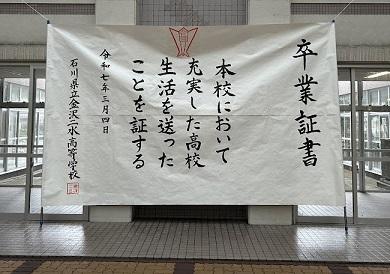 卒業証書
本校において
充実した高校
生活を送った
ことを証する
令和七年三月四日
石川県立金沢二水高等学校